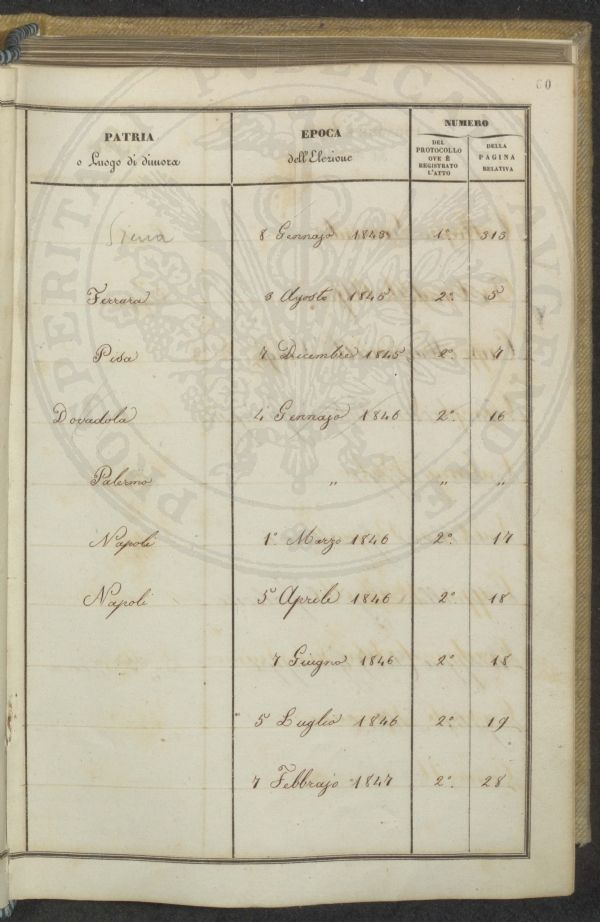 60
PATRIA
o Luogo di dimora
EPOCA
dell'Elezione
NUMERO
DEL
PROTOCOLLO
OVE È
REGISTRATO
L'ATTO
DELLA
PAGINA
RELATIVA
Siena 8 Gennajo 1843 1°. 313
Ferrara 3 Agosto 1845 2°. 5
Pisa 7 Dicembre 1845 2°. 7
Dovadola 4 Gennajo 1846 2°. 16
Palermo " " "
Napoli 1° Marzo 1846 2°. 17
Napoli 5 Aprile 1846 2°. 18
7 Giugno 1846 2°. 18
5 Luglio 1846 2°. 19
7 Febbrajo 1847 2°. 28
PROSPERITATI PUBLICAE AUGENDAE